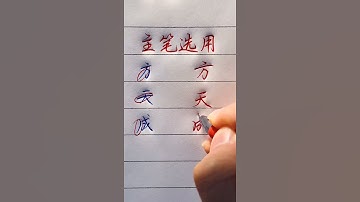 主笔选用
方 方
天 天
成